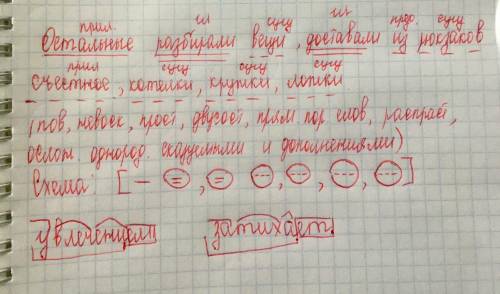 прил. гл сущ гл. пред. сущ
Остальные разбирали вещи, доставали из рюкзаков
прил сущ сущ сущ
съестное, котелки, кружки, ложки
(пов, невоск, прост, двусост, прям пор слов, распрост,
ослож. однород. сказуемыми и дополнениями)
Схема: [— =, = --, --, --, --]
Увлечением затихает